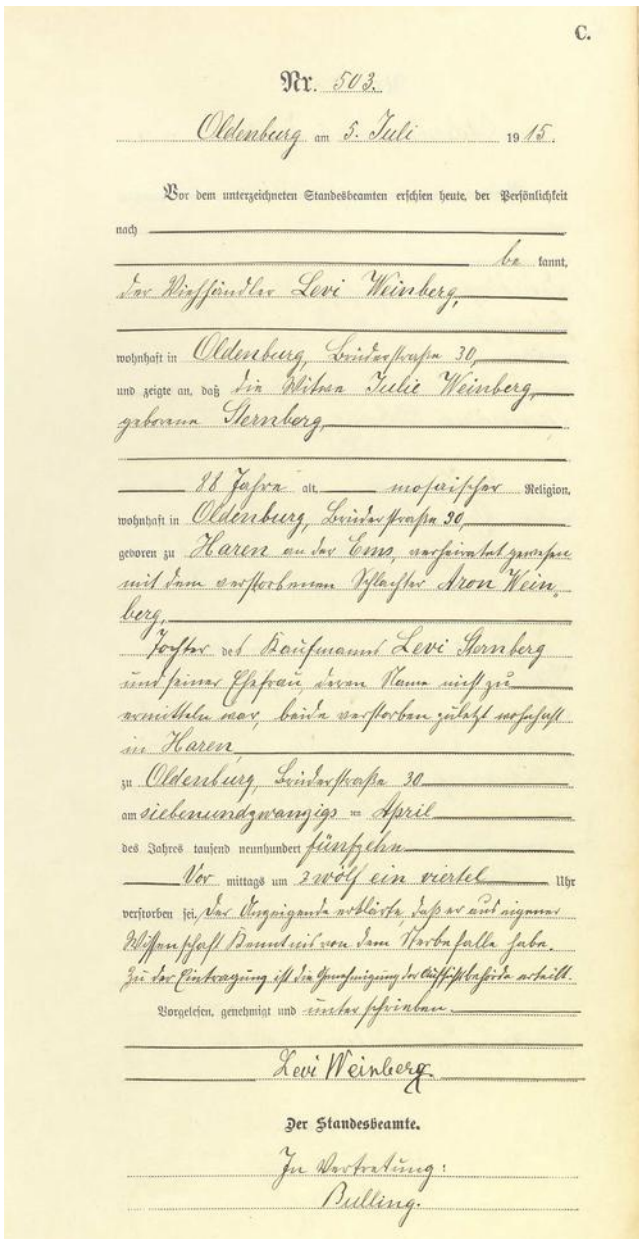 C.
Nr. 503.
Oldenburg am 5. Juli 1915.
Vor dem unterzeichneten Standesbeamten erschien heute, der Persönlichkeit
nach
be kannt,
der Viehhändler Levi Weinberg,
wohnhaft in Oldenburg, Brüderstraße 30,
und zeigte an, daß die Witwe Julie Weinberg,
geborene Sternberg,
88 Jahre alt, mosaischer Religion,
wohnhaft in Oldenburg, Brüderstraße 30,
geboren zu Haren an der Ems, verheiratet gewesen
mit dem verstorbenen Schlachter Aron Wein-
berg,
Tochter des Kaufmanns Levi Sternberg
und seiner Ehefrau, deren Name nicht zu
ermitteln war, beide verstorben zuletzt wohnhaft
in Haren,
zu Oldenburg, Brüderstraße 30
am siebenundzwanzigsten April
des Jahres tausend neunhundert fünfzehn
Vor mittags um zwölf ein viertel Uhr
verstorben sei. Der Anzeigende erklärte, daß er aus eigener
Wissenschaft Kenntnis von dem Sterbefalle habe.
Zu der Eintragung ist die Genehmigung der Aufsichtsbehörde erteilt.
Vorgelesen, genehmigt und unterschrieben.
Levi Weinberg.
Der Standesbeamte.
In Vertretung:
Bulling.